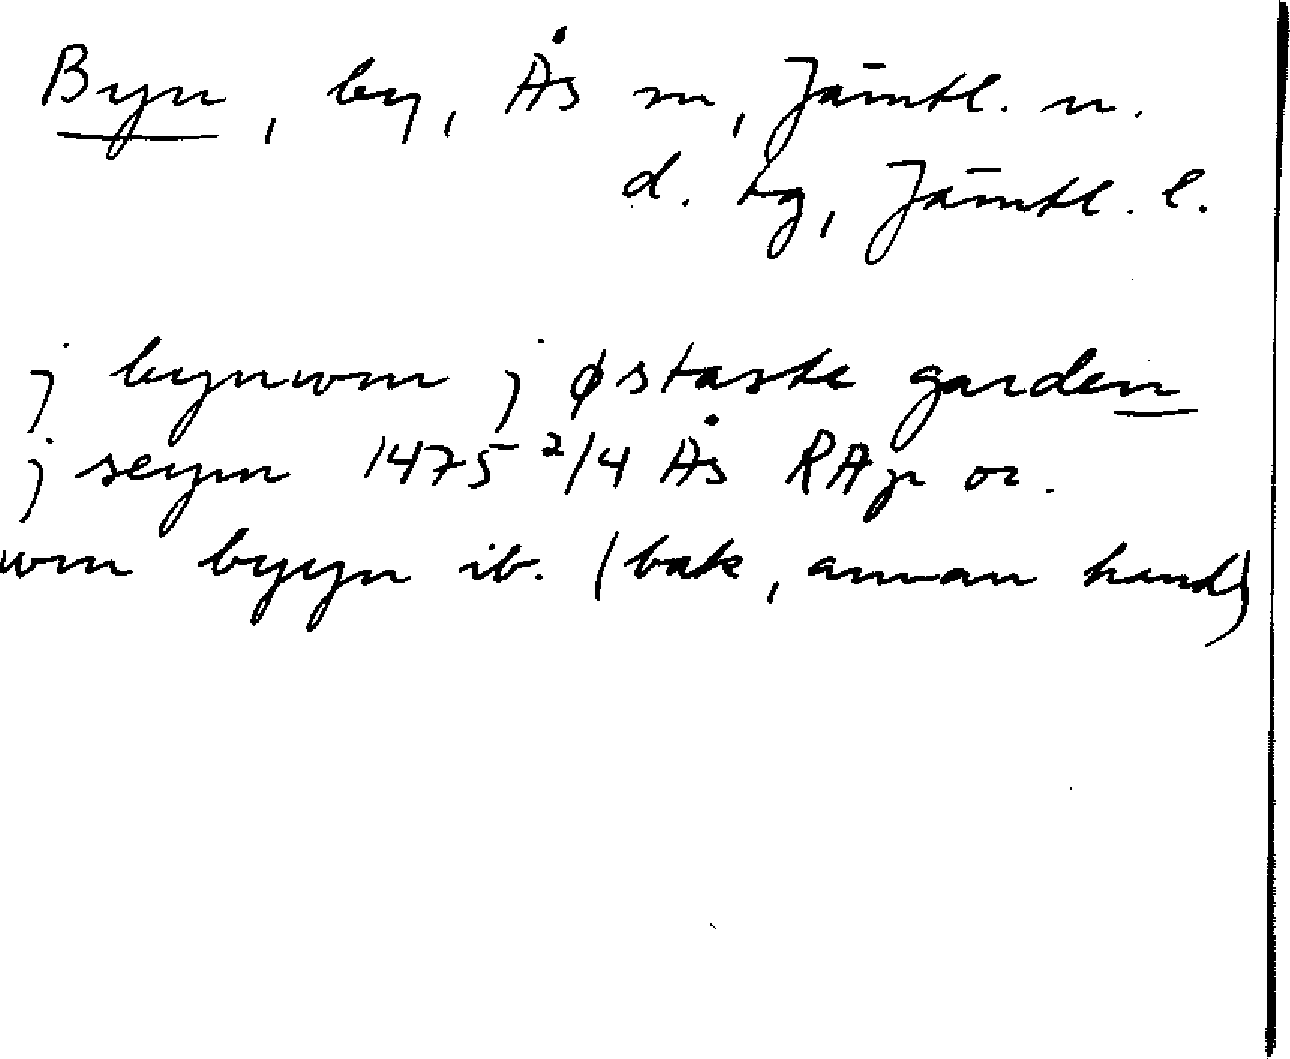 Byn, by, Ås sn, Jämtl. n.
d. tg, Jämtl. l.
j bynwm j østasta garden
j seym 1475 2/4 Ås RAp or.
wm byyn ib. (bak, annan hand)